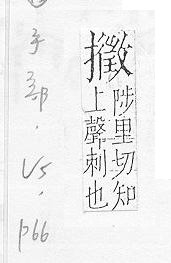 陟里切知
上聲刺也
手部.V5.p66